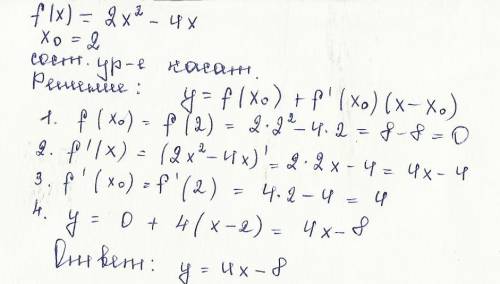 f(x) = 2x² - 4x
x₀ = 2
сост. ур-е касат.
Решение:
y = f(x₀) + f'(x₀)(x-x₀)
1. f(x₀) = f(2) = 2·2² - 4·2 = 8-8 = 0
2. f'(x) = (2x² - 4x)' = 2·2x - 4 = 4x - 4
3. f'(x₀) = f'(2) = 4·2 - 4 = 4
4. y = 0 + 4(x-2) = 4x-8
Ответ: y = 4x-8